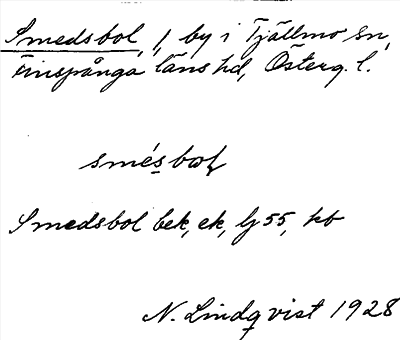 Smedsbol, 1, by i Tjällmo sn,
Finspånga läns hd, Österg. l.
smésbol
Smedsbol bek, ek, lj 55, kb
N. Lindqvist 1928